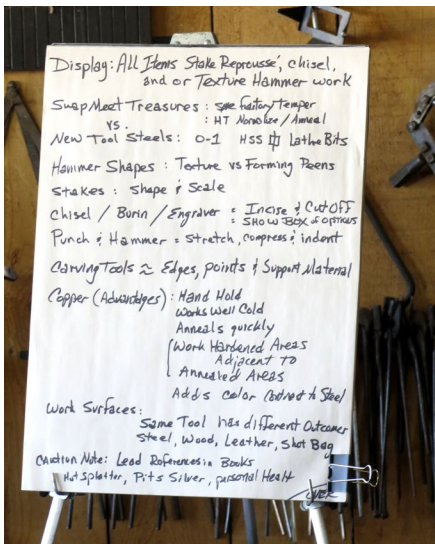 Display: All Items Stake Repoussé, chisel,
and or Texture Hammer work
Swap Meet Treasures: some factory temper
vs. : HT Normalize / Anneal
New Tool Steels: O-1 HSS Lathe Bits
Hammer Shapes: Texture vs Forming Peens
Stakes: Shape & Scale
Chisel / Burin / Engraver = Incise & Cut Off
= SHOW BOX of options
Punch & Hammer = Stretch, compress & indent
Carving Tools ≈ Edges, points & Support Material
Copper (Advantages): Hand Hold
Works Well Cold
Anneals quickly
Work Hardened Areas
Adjacent To
Annealed Areas
Adds color Contrast to Steel
Work Surfaces:
Same Tool has different Outcomes
Steel, Wood, Leather, Shot Bag
Caution Note: Lead References in Books
Hot Splatter, Pits Silver, personal Healt